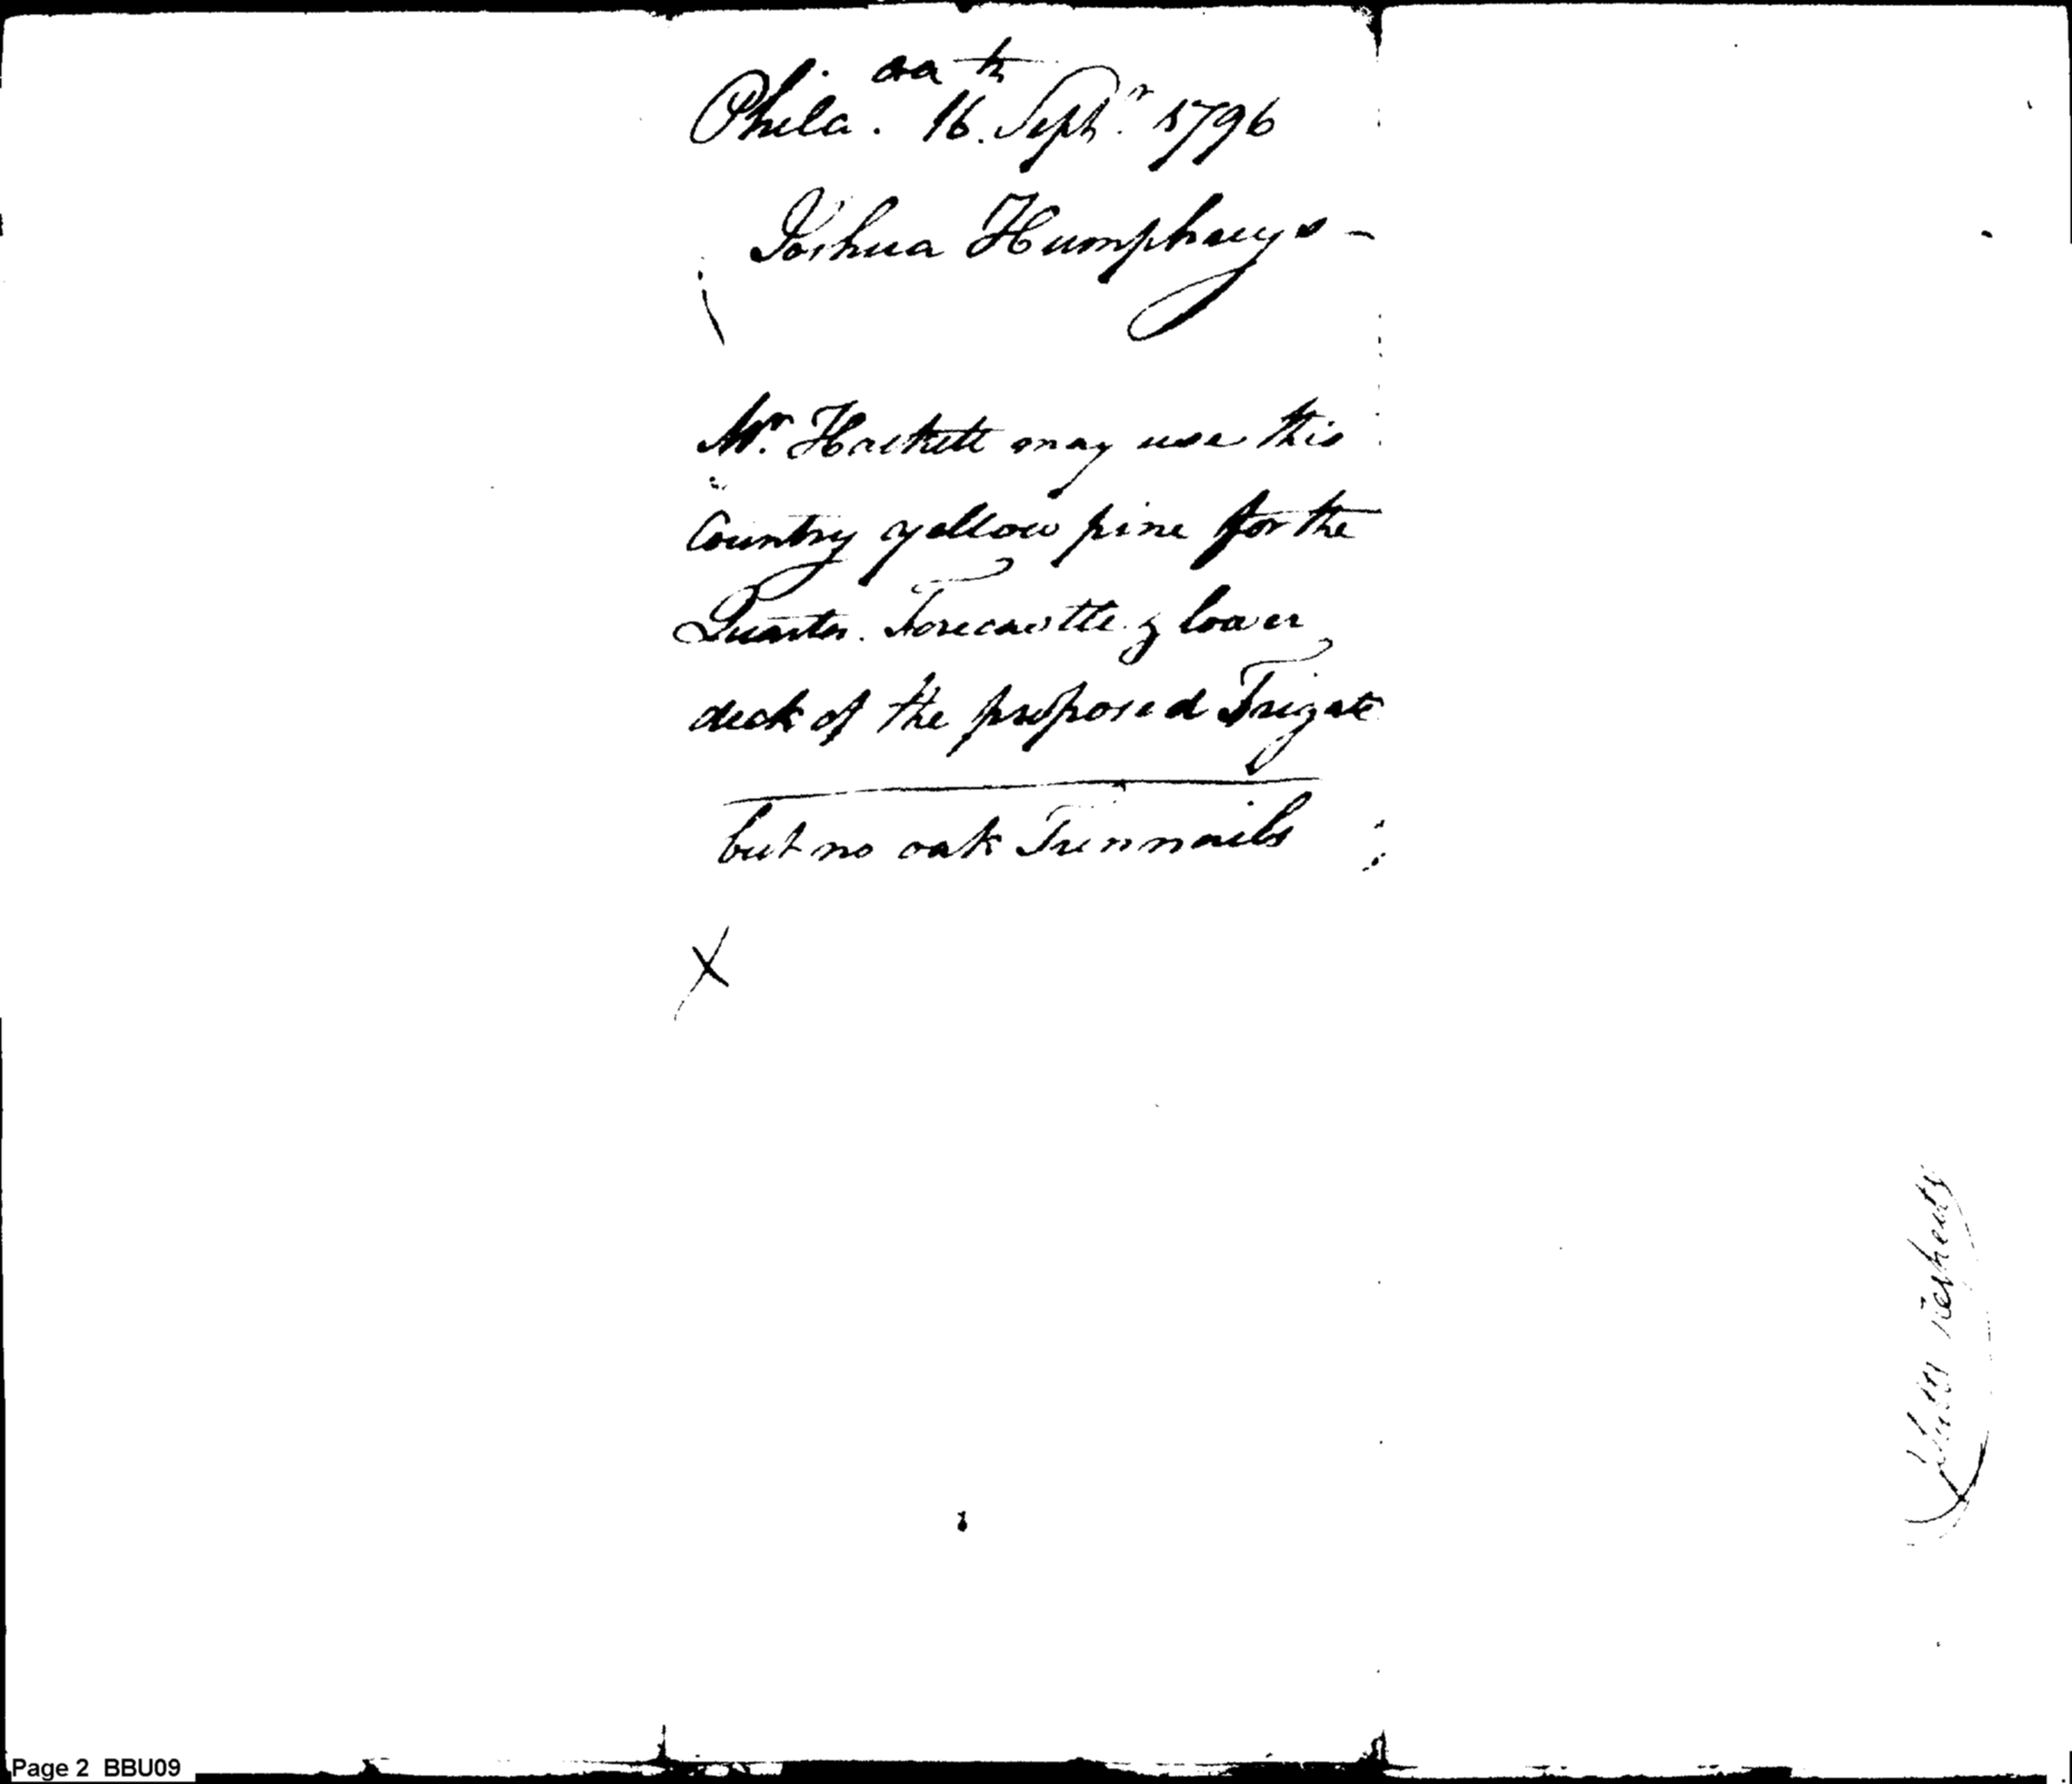 Phila. 16th. Septr. 1796
Joshua Humphreys -
Mr. Hackett may use this
Country yellow pine for the
Quarter. Forecastle & lower
deck of the proposed Frigate
but no oak Trennails
X
Page 2 BBU09